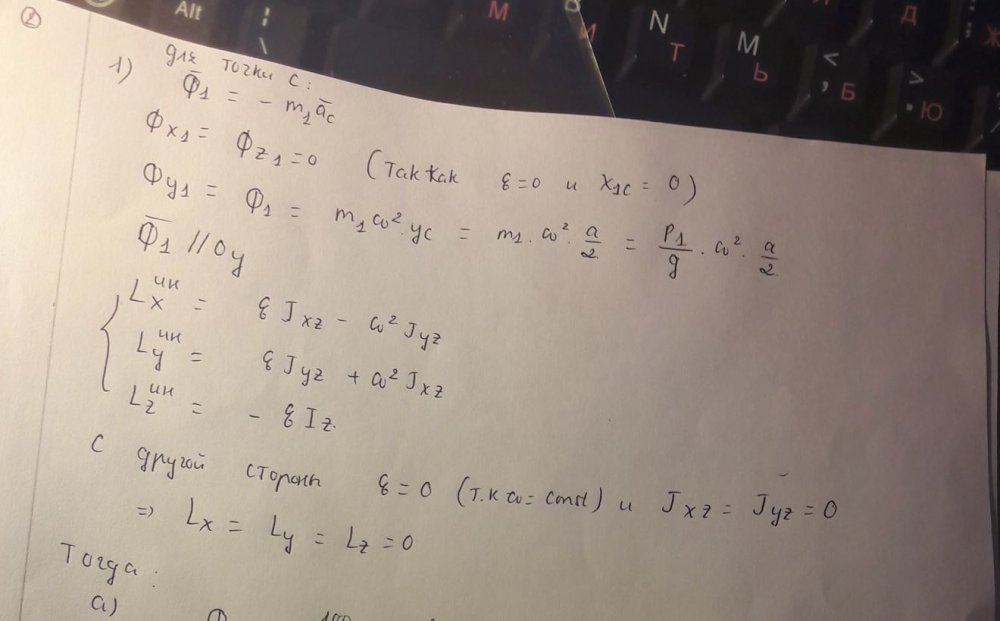 Alt
М
И
N
Т
М
Ь
<
,
Б
>
.
Ю
Д
Ж
②
1) для точки С:
Φ̅₁ = - m₁a̅c
Φx₁ = Φz₁ = 0 (так как ε=0 и x₁c = 0)
Φy₁ = Φ₁ = m₁ω²·yc = m₁·ω²·a/2 = P₁/g·ω²·a/2
Φ̅₁ // Oy
Lxᶦⁿ = εJxz - ω²Jyz
Lyᶦⁿ = εJyz + ω²Jxz
Lzᶦⁿ = - εIz
С другой стороны ε=0 (т.к ω=const) и Jxz = Jyz = 0
=> Lx = Ly = Lz = 0
Тогда:
а)